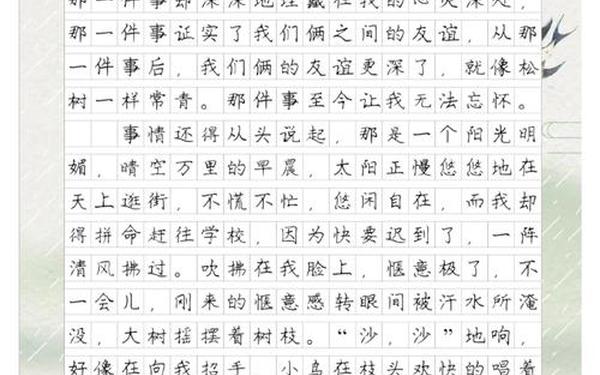 那一件事却深深地埋藏在我的心灵深处，
那一件事证实了我们俩之间的友谊，从那
一件事后，我们俩的友谊更深了，就像松
树一样常青。那件事至今让我无法忘怀。
事情还得从头说起，那是一个阳光明
媚，晴空万里的早晨，太阳正慢悠悠地在
天上逛街，不慌不忙，悠闲自在，而我却
得拼命赶往学校，因为快要迟到了，一阵
清风拂过。吹拂在我脸上，惬意极了，不
一会儿，刚来的惬意感转眼间被汗水所淹
没，大树摇摆着树枝。“沙，沙”地响，
好像在向我招手，小鸟在枝头欢快的唱着